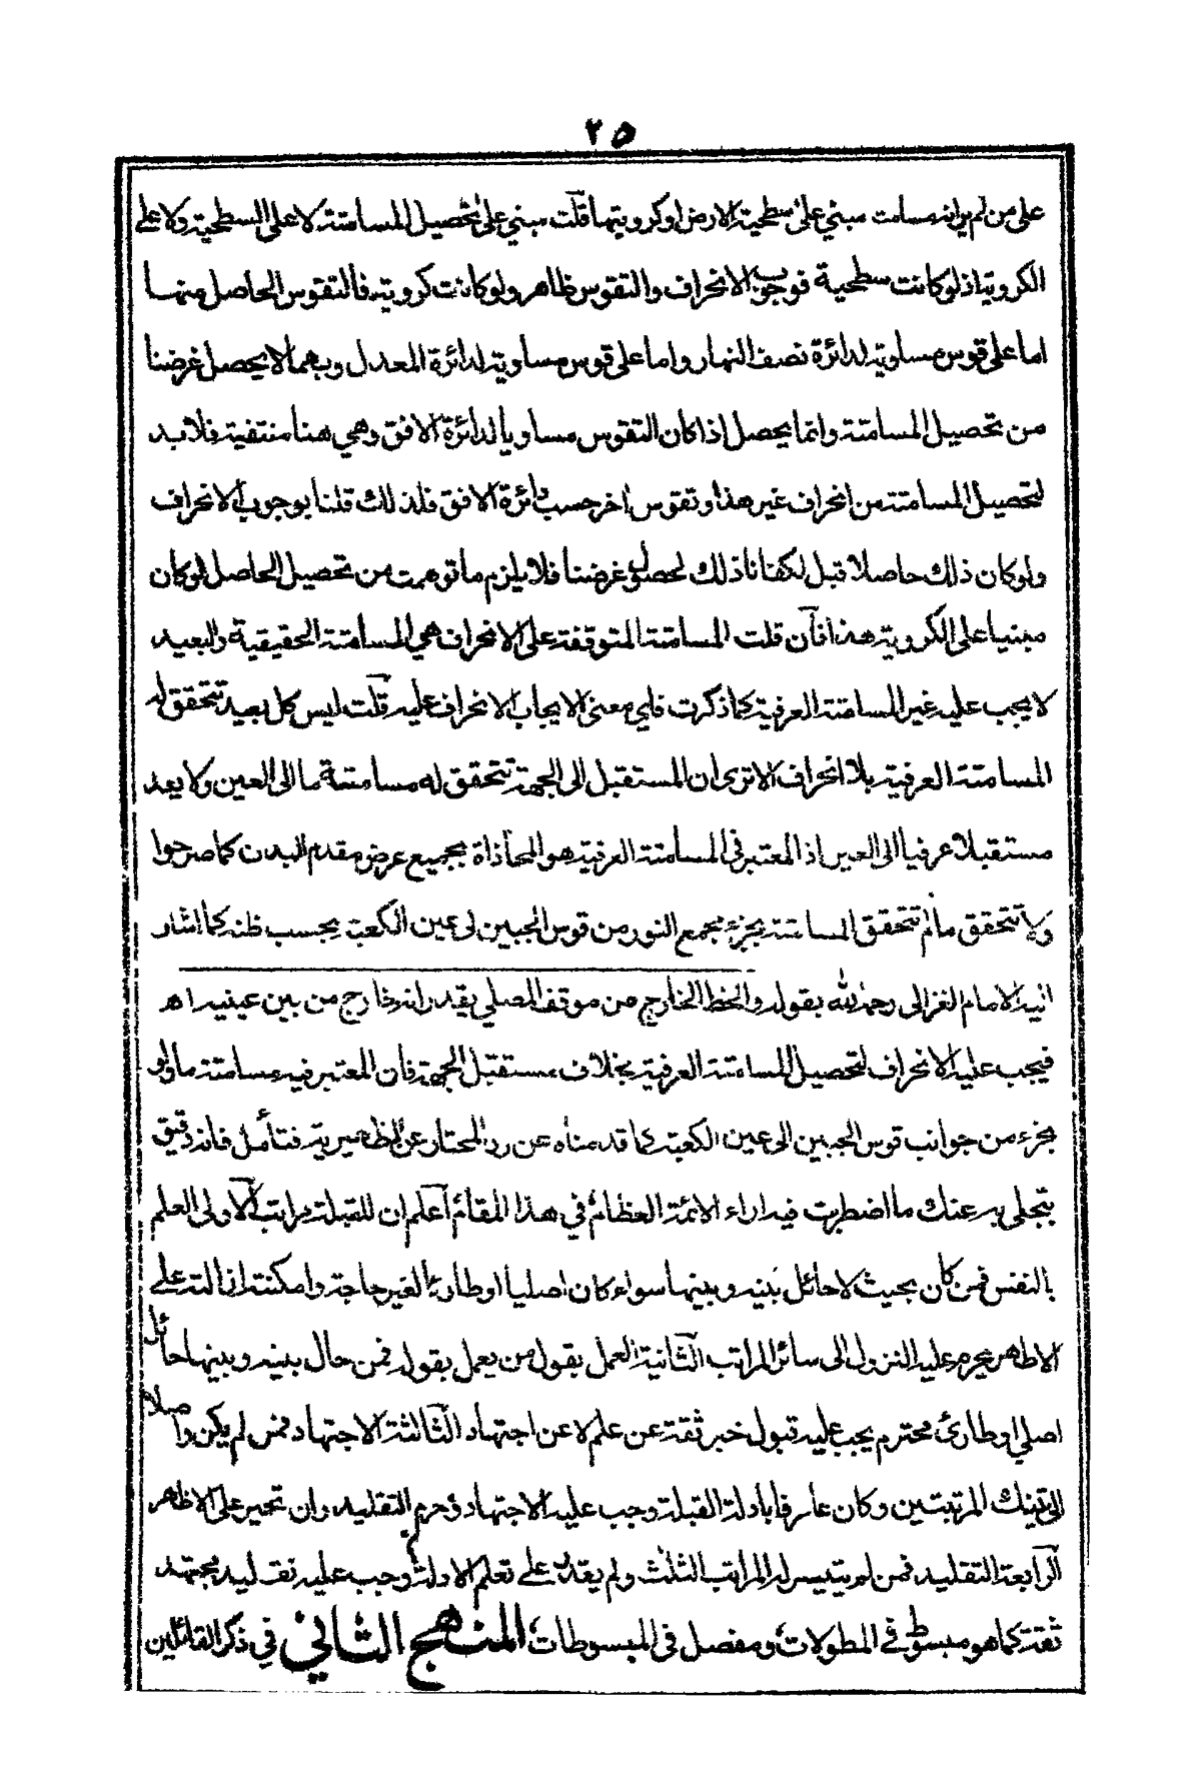 ٢٥
على من لم ير انه مسامت مبني على سطحية الارض او كرويتها قلت مبني على تحصيل المسامتة لا على السطحية ولا على
الكروية اذ لو كانت سطحية فوجوب الانحراف والتقوس ظاهر ولو كانت كروية فالتقوس الحاصل منها
اما على قوس مساوية لدائرة نصف النهار واما على قوس مساوية لدائرة المعدل وبهما لا يحصل غرضنا
من تحصيل المسامتة وانما يحصل اذا كان التقوس مساويا لدائرة الافق وهي هنا منتفية فلا بد
لتحصيل المسامتة من انحراف غير هذا وتقوس اخر حسب دائرة الافق فلذلك قلنا بوجوب الانحراف
ولو كان ذلك حاصلا قبل لكفانا ذلك لحصول غرضنا فلا يلزم ما توهمت من تحصيل الحاصل لو كان
مبنيا على الكروية هذا فان قلت المسامتة المتوقفة على الانحراف هي المسامتة الحقيقية والبعيد
لا يجب عليه غير المسامتة العرفية كما ذكرت فاي معنى لايجاب الانحراف عليه قلت ليس كل بعيد تتحقق له
المسامتة العرفية بلا انحراف الا ترى ان المستقبل الى الجهة تتحقق له مسامتة ما الى العين ولا يعد
مستقبلا عرفيا الى العين اذ المعتبر في المسامتة العرفية هو المحاذاة بجميع عرض مقدم البدن كما صرحوا
ولا تتحقق ما لم تتحقق المسامتة بجزء مجمع النور من قوس الجبين لى عين الكعبة بحسب ظنه كما اشار
اليه الامام الغزالى رحمه الله بقوله والخط الخارج من موقف المصلي يقدر انه خارج من بين عينيه اه
فيجب عليه الانحراف لتحصيل المسامتة العرفية بخلاف مستقبل الجهة فان المعتبر فيه مسامتة ما ولو
بجزء من جوانب قوس الجبين الى عين الكعبة كما قدمناه عن رد المحتار عن الظهيرية فتأمل فانه دقيق
يتجلى به عنك ما اضطربت فيه اراء الائمة العظام في هذا المقام اعلم ان للقبلة مراتب الاولى العلم
بالنفس فمن كان بحيث لا حائل بينه وبينها سواء كان اصليا او طارئا لغير حاجة وامكنته ازالته على
الاظهر يحرم عليه النزول الى سائر المراتب الثانية العمل بقول من يعمل بقوله فمن حال بينه وبينها حائل
اصلي او طارئ محترم يجب عليه قبول خبر ثقة عن علم لا عن اجتهاد الثالثة الاجتهاد فمن لم يكن واصلا
الى تينك المرتبتين وكان عارفا بادلة القبلة وجب عليه الاجتهاد وحرم التقليد وان تحير على الاظهر
الرابعة التقليد فمن لم يتيسر له المراتب الثلث ولم يقدر على تعلم الادلة وجب عليه تقليد مجتهد
ثقة كما هو مبسوط في المطولات ومفصل فى المبسوطات المنهج الثاني في ذكر القائلين